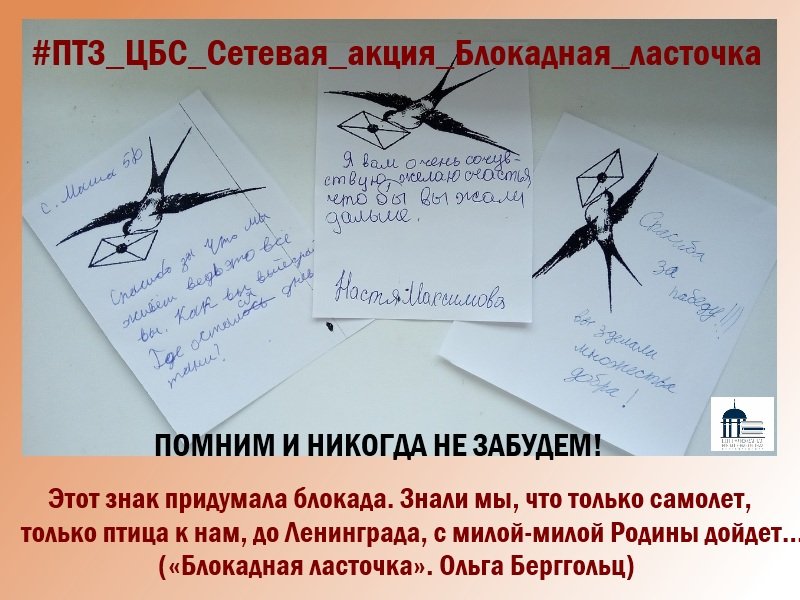 #ПТЗ_ЦБС_Сетевая_акция_Блокадная_ласточка
с. Маша 5В
Спасибо за что мы
живём ведь это всё
вы. Как вы
Где осталось
тани?
Я вам очень сочув-
ствую, желаю счастья
что бы вы жали
дальше.
Настя Максимова
Спасиба
за
победу!!!
вы зделали
множества
добра!
ПОМНИМ И НИКОГДА НЕ ЗАБУДЕМ!
Этот знак придумала блокада. Знали мы, что только самолет,
только птица к нам, до Ленинграда, с милой-милой Родины дойдет...
(«Блокадная ласточка». Ольга Берггольц)